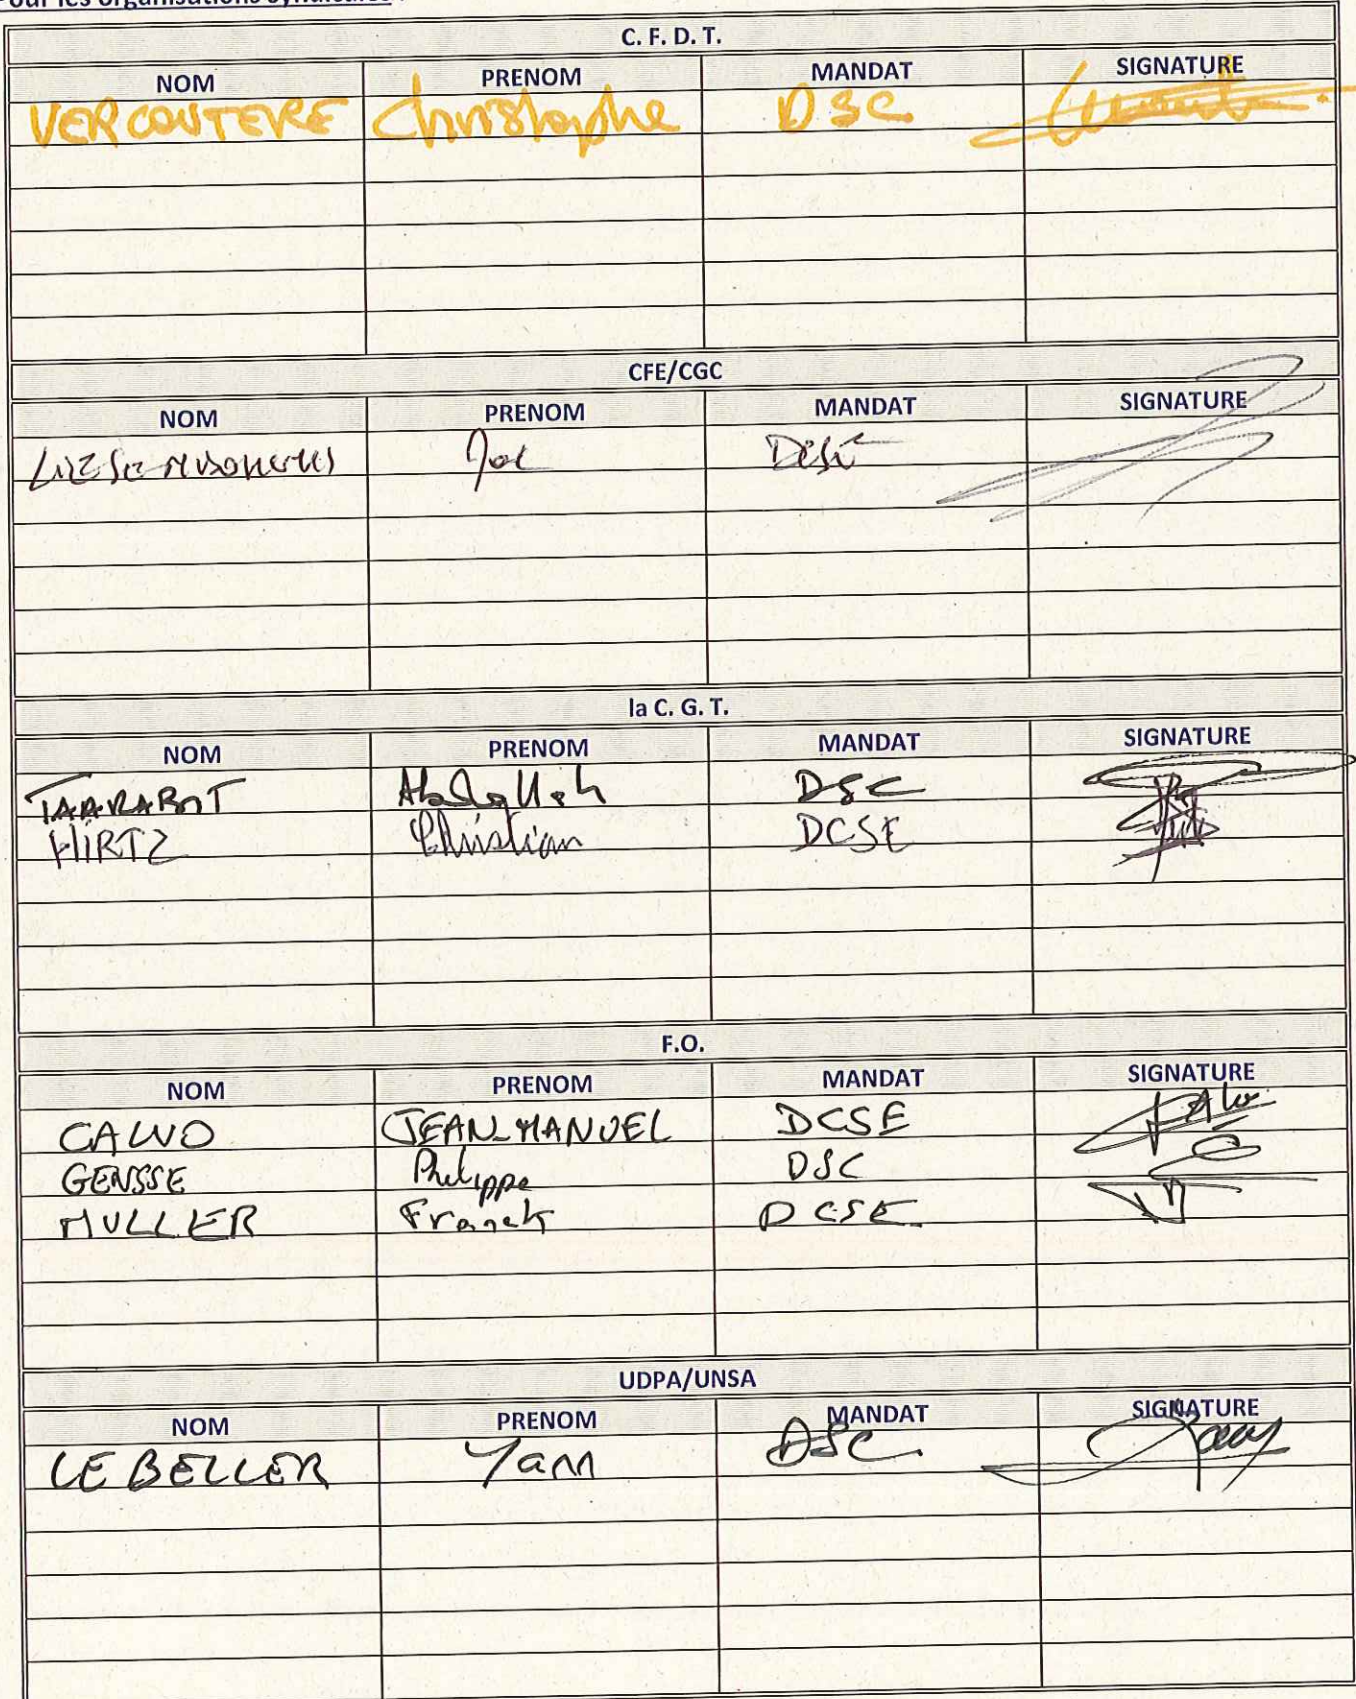 Pour les organisations syndicales :
C. F. D. T.
NOM PRENOM MANDAT SIGNATURE
VERCOUTERE Christophe DSC
CFE/CGC
NOM PRENOM MANDAT SIGNATURE
Joel
la C. G. T.
NOM PRENOM MANDAT SIGNATURE
TAARABOT Abdallah DSC
HIRTZ Christian DCSE
F.O.
NOM PRENOM MANDAT SIGNATURE
CALVO JEAN-MANUEL DCSE
GENSSE Philippe DSC
MULLER Franck DCSE
UDPA/UNSA
NOM PRENOM MANDAT SIGNATURE
LE BELLER Yann DSC